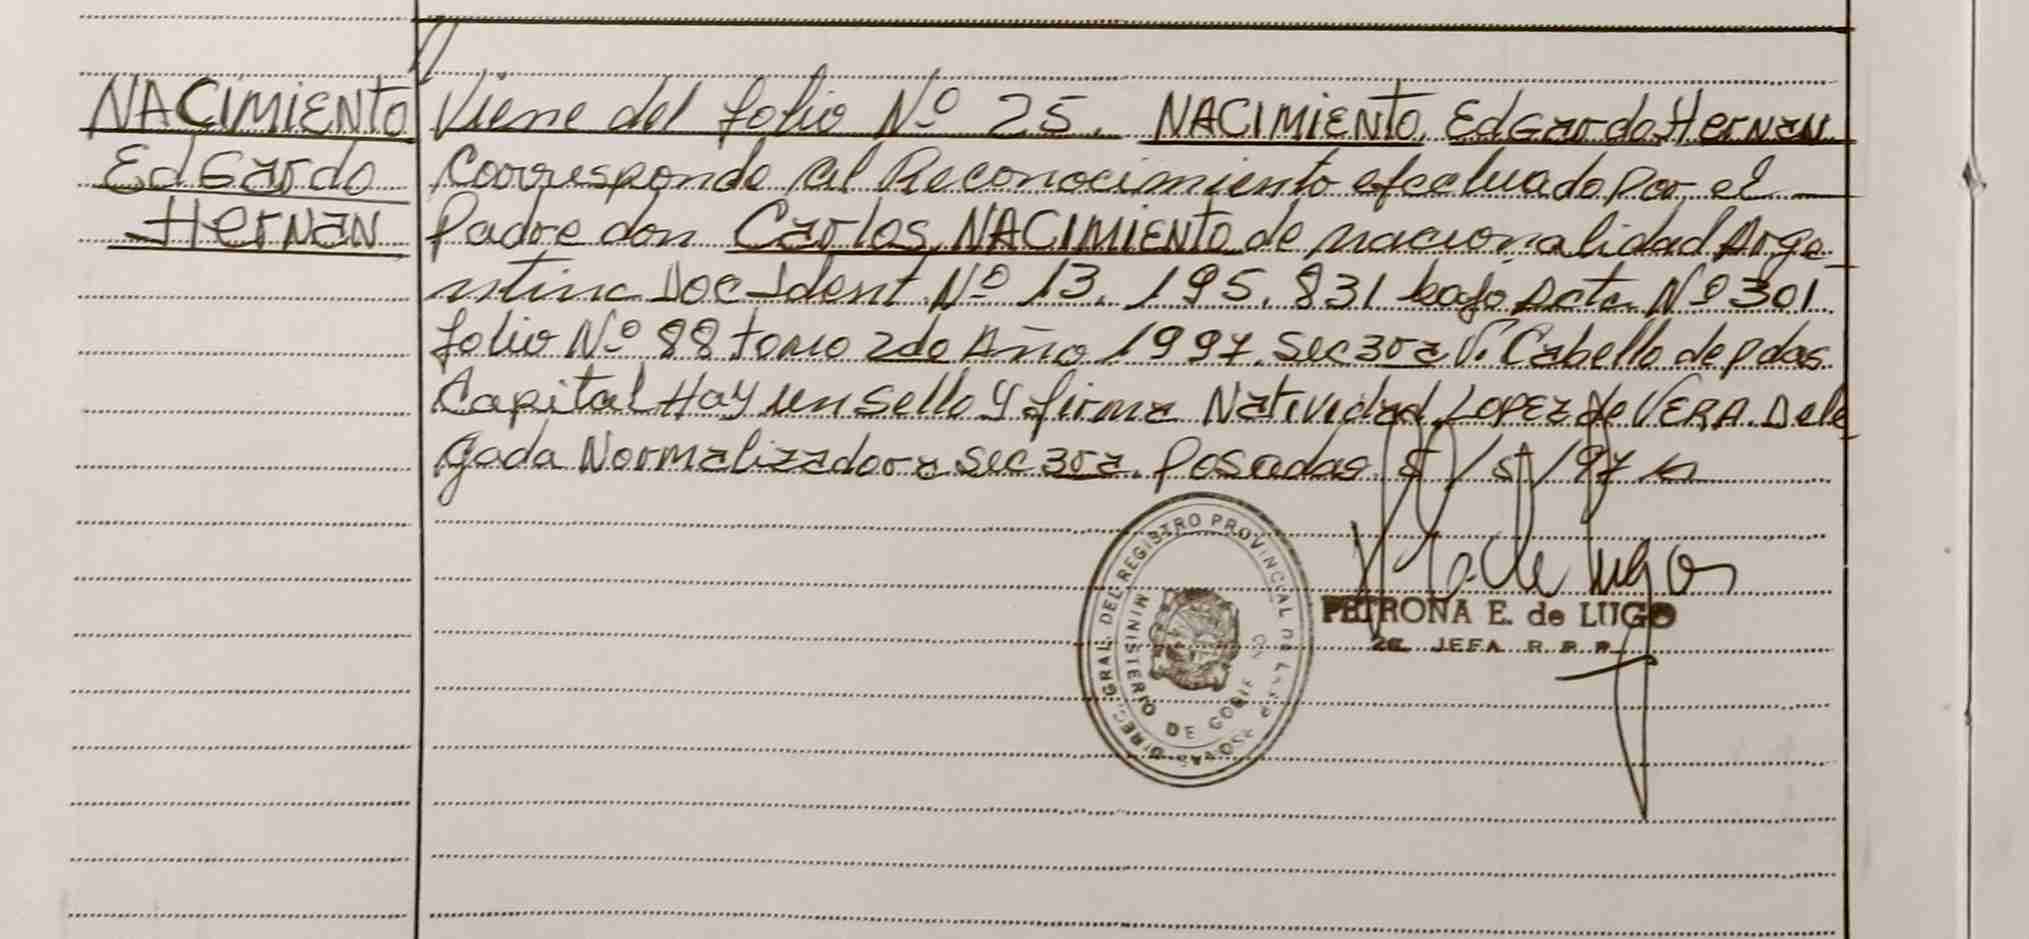 NACIMIENTO
EdGardo
HerNAN
Viene del folio Nº 25. NACIMIENTO EdGardo HerNAN
Corresponde al Reconocimiento efectuado por el
Padre don Carlos NACIMIENTO de nacionalidad Arge
ntina Doc Ident Nº 13.195.831 bajo Acta Nº 301
folio Nº 88 tomo 2do Año 1997 Sec 3ra V. Cabello de Pdas
Capital Hay un Sello y firma Natividad LOPEZ de VERA. Dele
gada Normalizadora Sec 3ra. Posadas /97
DIREC. GRAL. DEL REGISTRO PROVINCIAL DE LAS P
MINISTERIO DE GOB
PETRONA E. de LUGO
JEFA R. P. P.